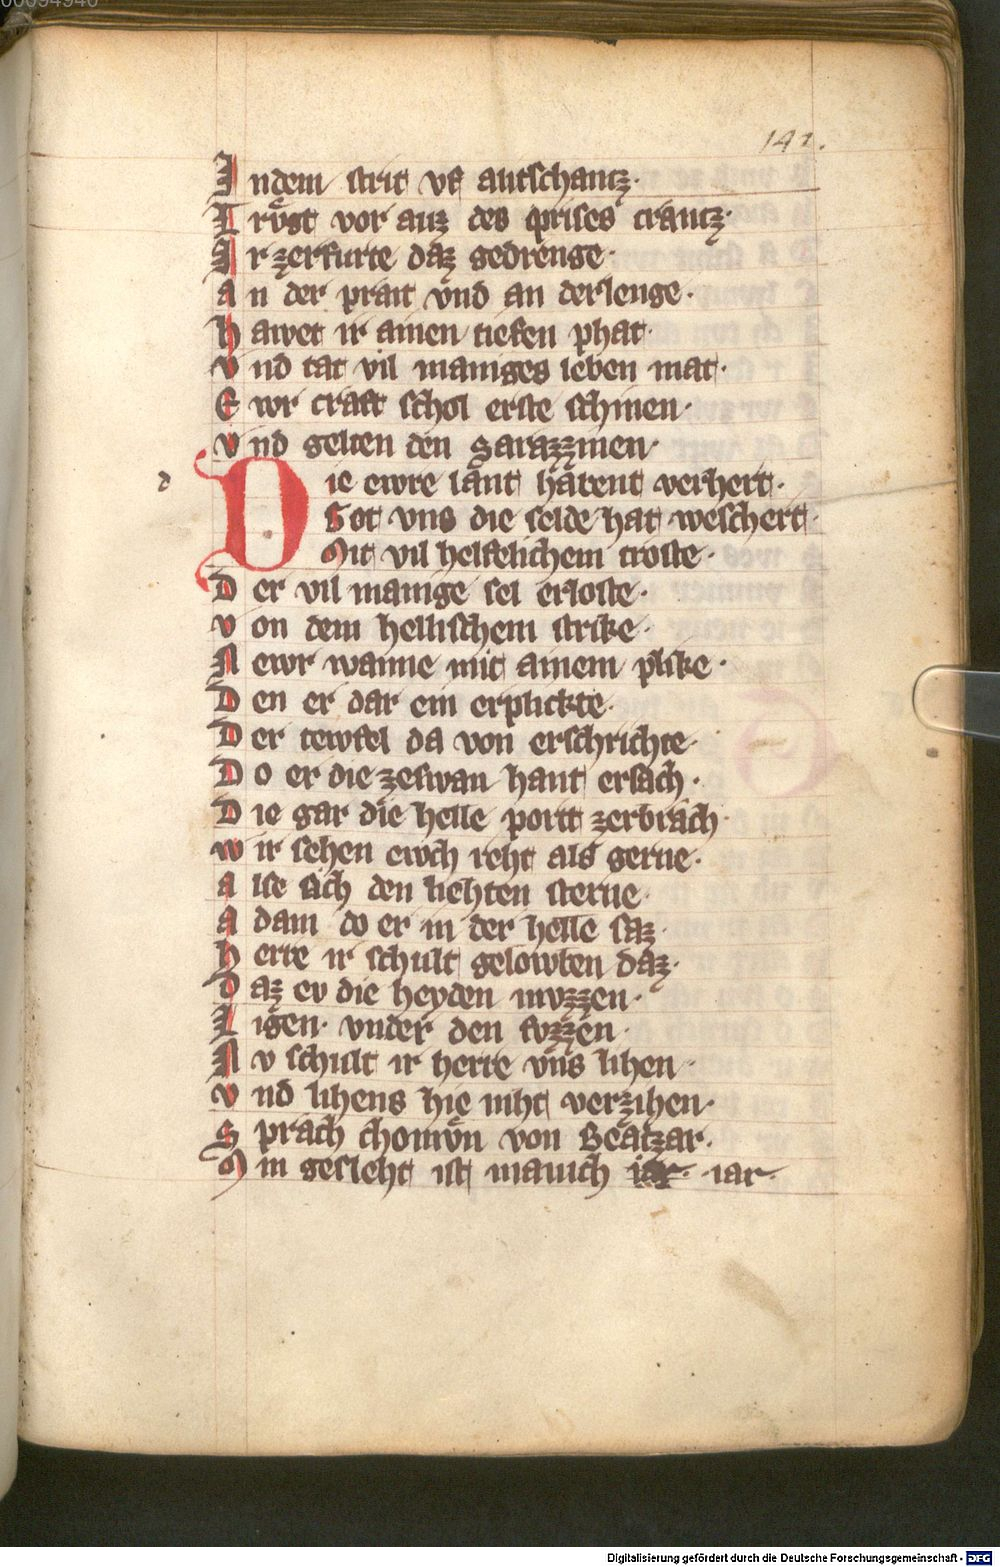 141.
Indem strit vf alitschantz·
Trv̊st vor auz des prises crantz·
Ir zerfurte daz gedrenge·
an der prait vnd an der lenge·
hawet ir ainen tiefen phat·
vnd tat vil maniges leben mat·
Ewr craft schol erste schinen·
vnd gelten den sarazzinen·
d
Die ewre lant habent verhert·
Got vns die selde hat weschert·
Mit vil helfelichem troste·
Der vil manige sel erloste·
von dem hellischem strike·
Newr wanne mit ainem plike·
Den er dar ein erplickte·
Der tewfel da von erschrichte·
Do er die zeswan hant ersach·
Die gar die helle portt zerbrach·
wir sehen ewch reht als gerne·
alse sich den liehten sterne·
adam do er in der helle saz·
herre ir schult gelowben daz·
daz ev die heyden mvzzen·
Ligen· vnder den fvzzen·
Nv schult ir herre vns lihen·
vnd lihens hie niht verzihen·
Sprach chomvn von Beatzar·
Min gesleht ist manich iar·